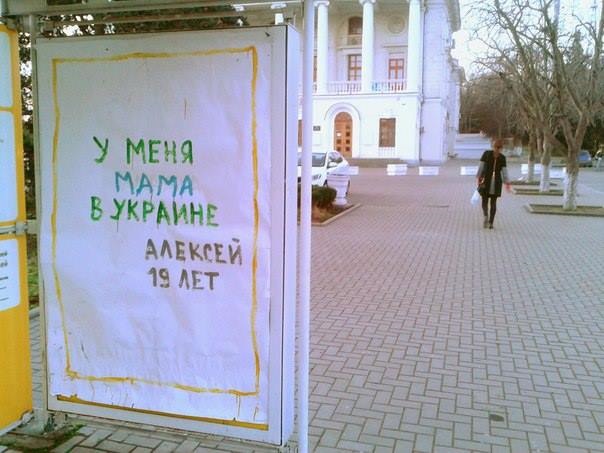 У МЕНЯ
МАМА
В УКРАИНЕ
АЛЕКСЕЙ
19 ЛЕТ